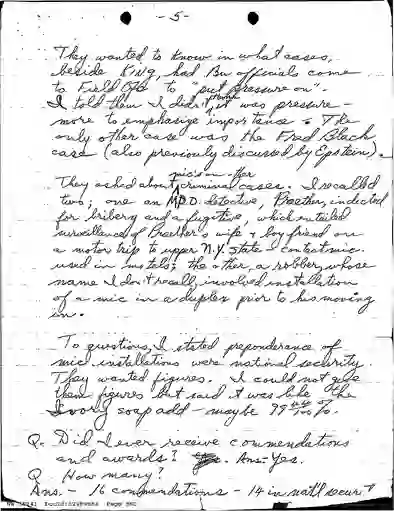 - 5 -
They wanted to know in what cases,
beside King, had Bu officials come
to Field Ofc to "put pressure on".
I told them I didn't think it was pressure -
more to emphasize importance. The
only other case was the Fred Black
case (also previously discussed by Epstein).
They asked about mic's in other criminal cases. I recalled
two; one an detective, Praether, indicted
for bribery and a fugitive, which entailed
surveillance of Praether's wife & boy friend on
a motor trip to upper N.Y. State &
used in motels; the other, a robber, whose
name I don't recall, involved installation
of a mic in a duplex prior to his moving
in.
To questions, I stated preponderance of
mic installations were national security.
They wanted figures. I could not give
them figures but said it was like the
Ivory soap add - maybe 99 44/100 %.
Q. Did I ever receive commendations
and awards? Ans. Yes.
Q How many?
Ans. - 16 commendations - 14 in nat'l securit
Page